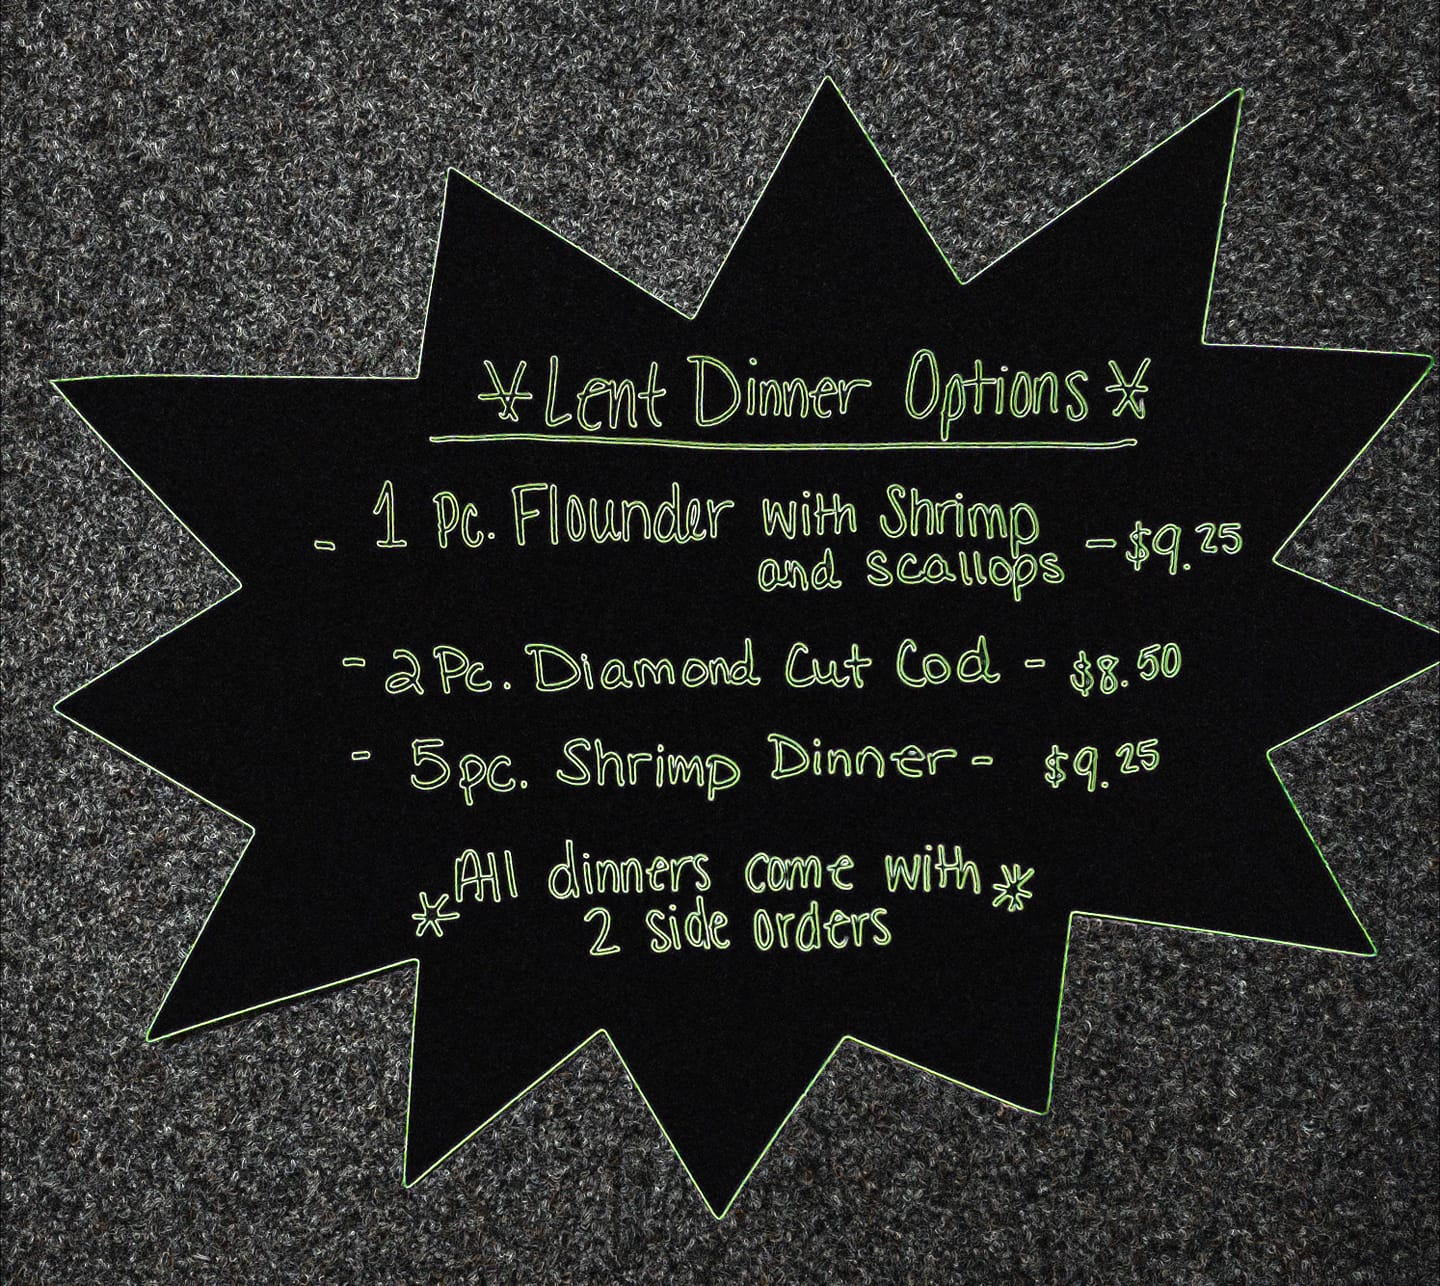 * Lent Dinner Options *
- 1 Pc. Flounder with Shrimp
and scallops - $9.25
- 2 Pc. Diamond Cut Cod - $8.50
- 5 pc. Shrimp Dinner - $9.25
* All dinners come with *
2 side orders